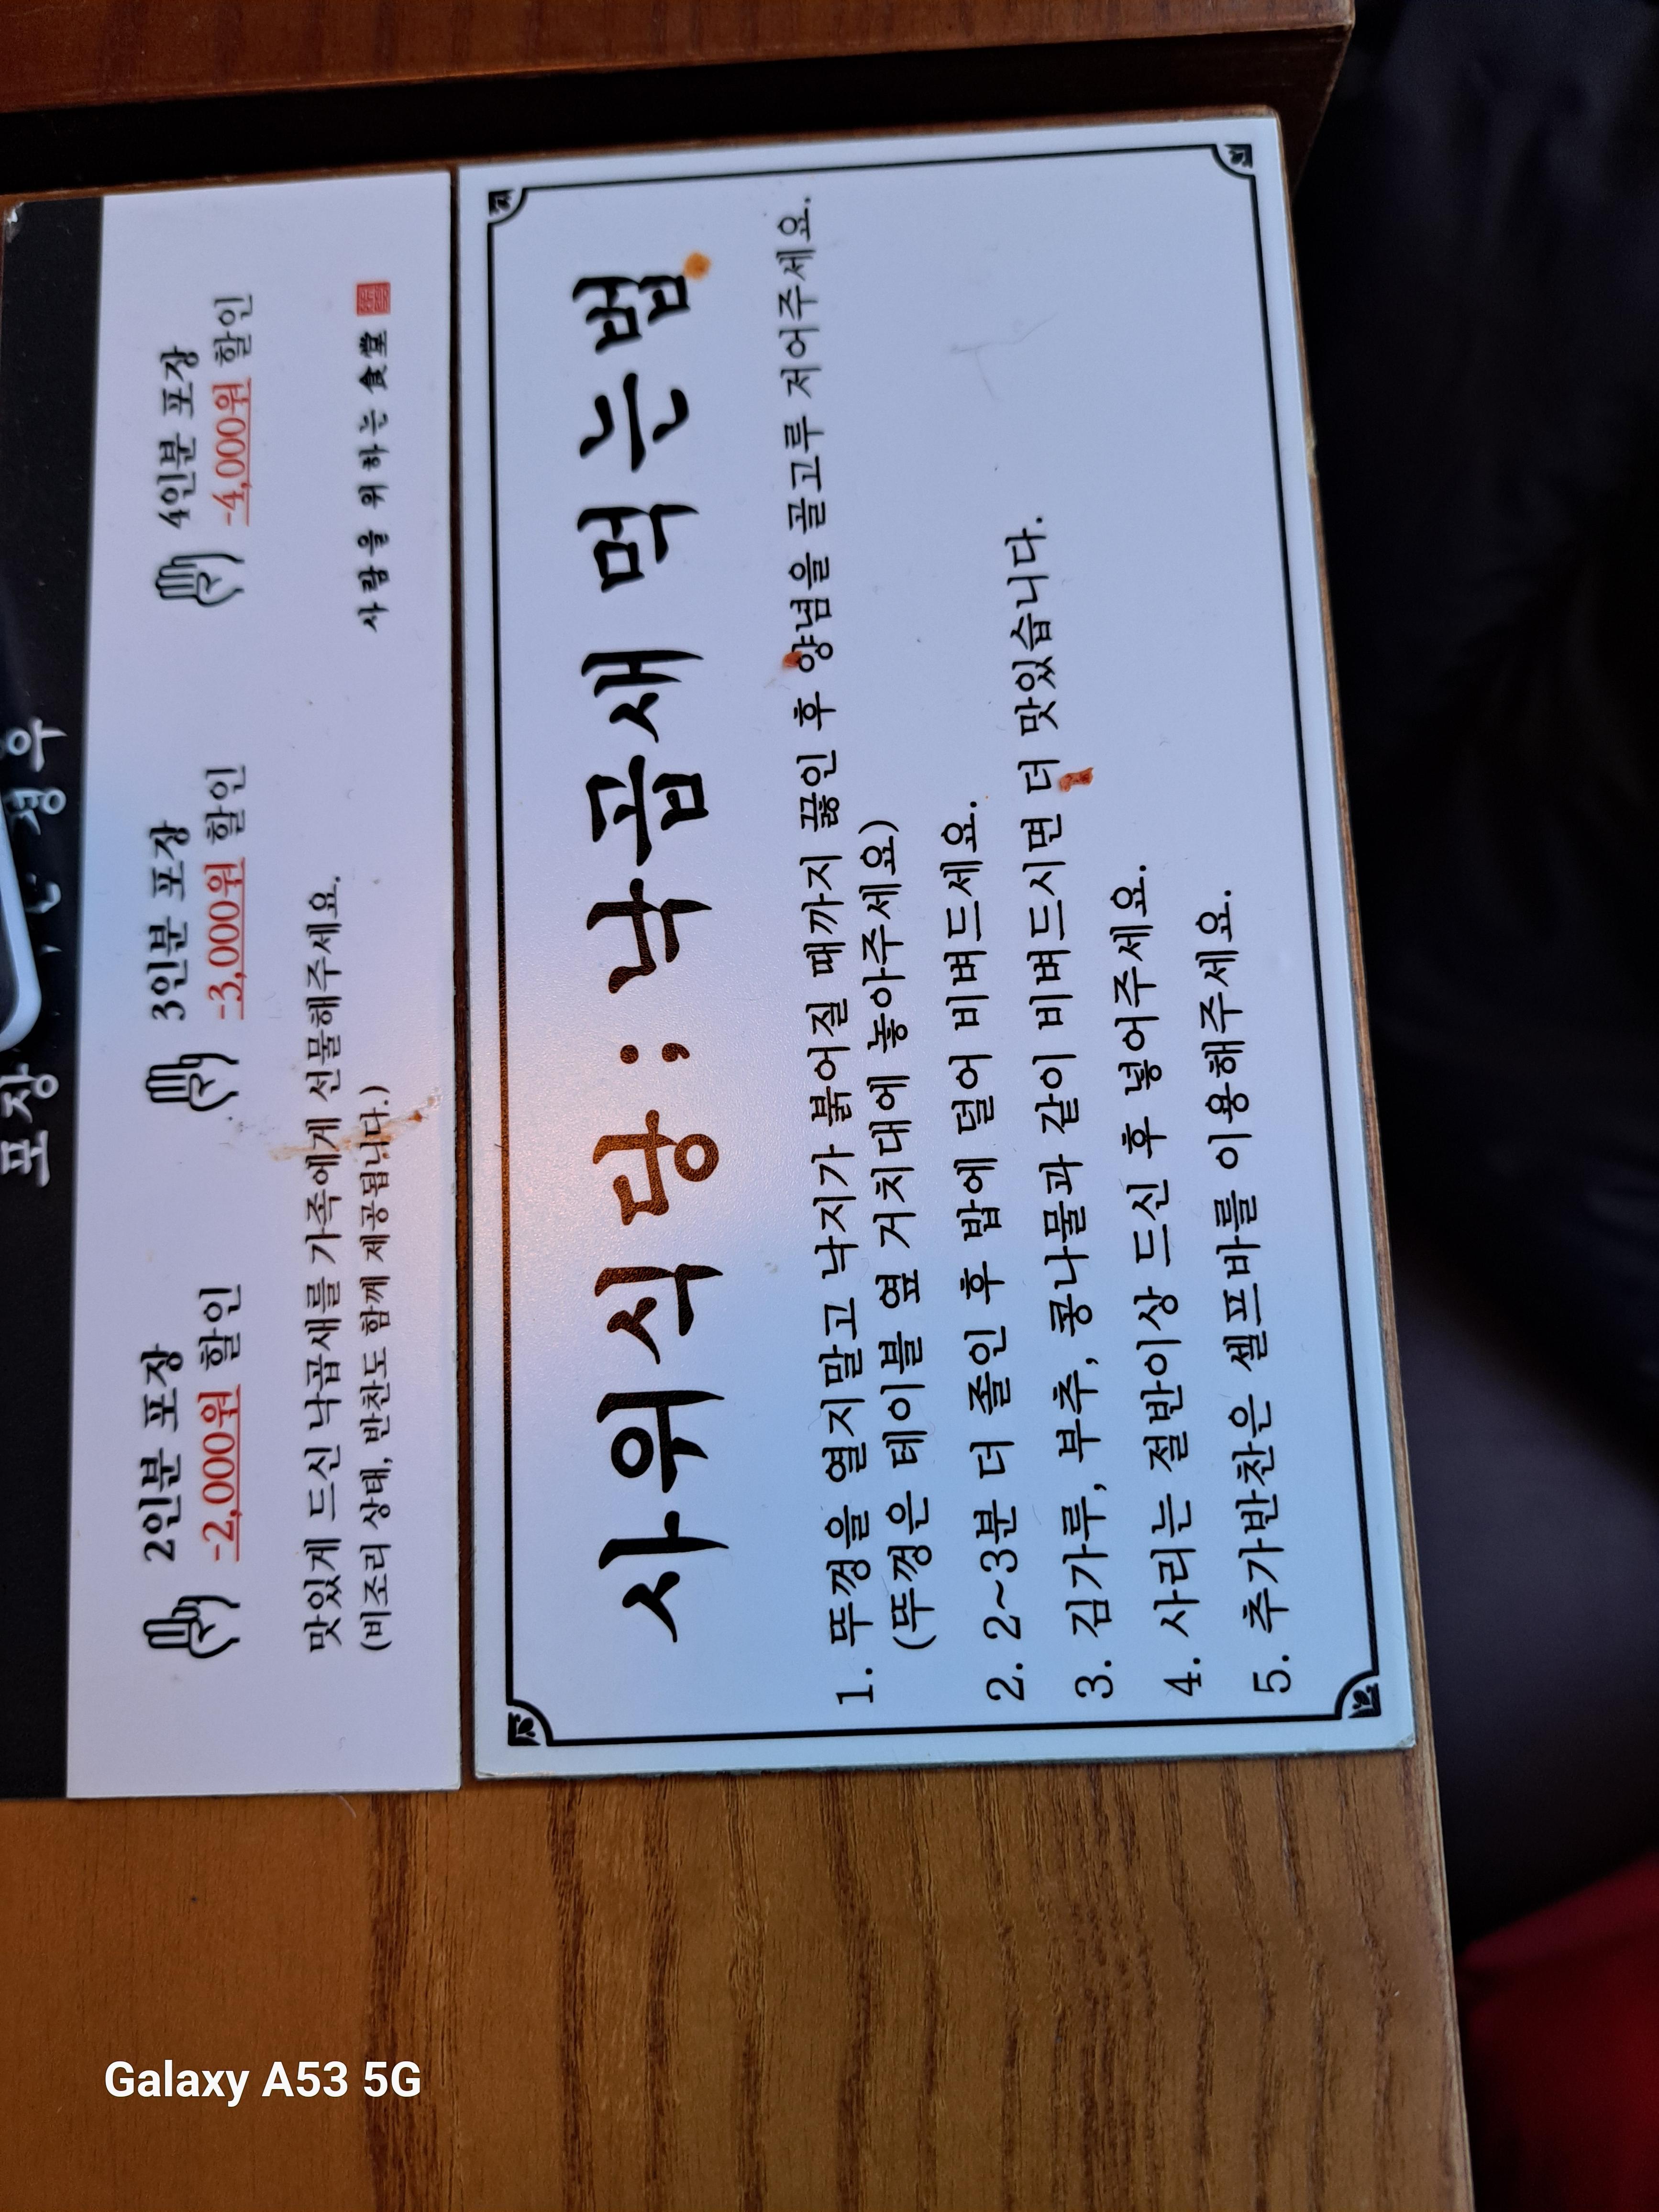 포장
2인분 포장
-2,000원 할인
3인분 포장
-3,000원 할인
4인분 포장
-4,000원 할인
맛있게 드신 낙곱새를 가족에게 선물해주세요.
(비조리 상태, 반찬도 함께 제공됩니다.)
사람을 위하는 食堂
사위식당 ; 낙곱새 먹는법
1. 뚜껑을 열지말고 낙지가 붉어질 때까지 끓인 후 양념을 골고루 저어주세요.
(뚜껑은 테이블 옆 거치대에 놓아주세요)
2. 2~3분 더 졸인 후 밥에 덜어 비벼드세요.
3. 김가루, 부추, 콩나물과 같이 비벼드시면 더 맛있습니다.
4. 사리는 절반이상 드신 후 넣어주세요.
5. 추가반찬은 셀프바를 이용해주세요.
Galaxy A53 5G